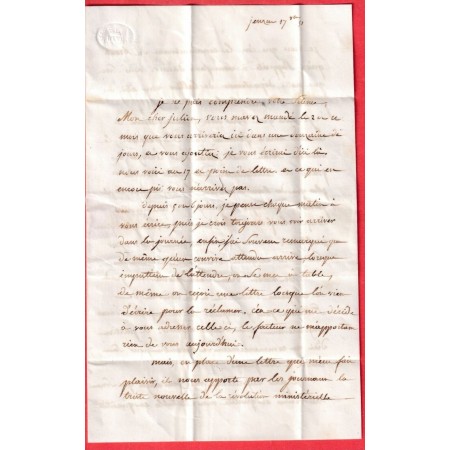 17
je ne puis comprendre votre silence
Mon cher Julien, vous m'avez mandé le 2 de ce
mois que vous arriveriez ici dans une semaine de
jours, et vous ajoutiez: je vous écrirai d'ici là,
nous voici au 17 et point de lettre, et ce qui est
encore pis vous n'arrivez pas.
Depuis jours, je pense chaque matin à
vous écrire, puis je crois toujours vous voir arriver
dans la journée, enfin j'ai souvent remarqué que
de même qu'un convive attendu arrive lorsque
impatienté de l'attendre, on se met à table,
de même on reçoit une lettre lorsque l'on vient
d'écrire pour la réclamer. c'est ce qui me décide
à vous adresser celle ci, le facteur ne m'apportant
rien de vous aujourd'hui.
mais, en place d'une lettre qui m'eut fait
plaisir, il nous apporte par les journaux la
triste nouvelle de la révolution ministérielle